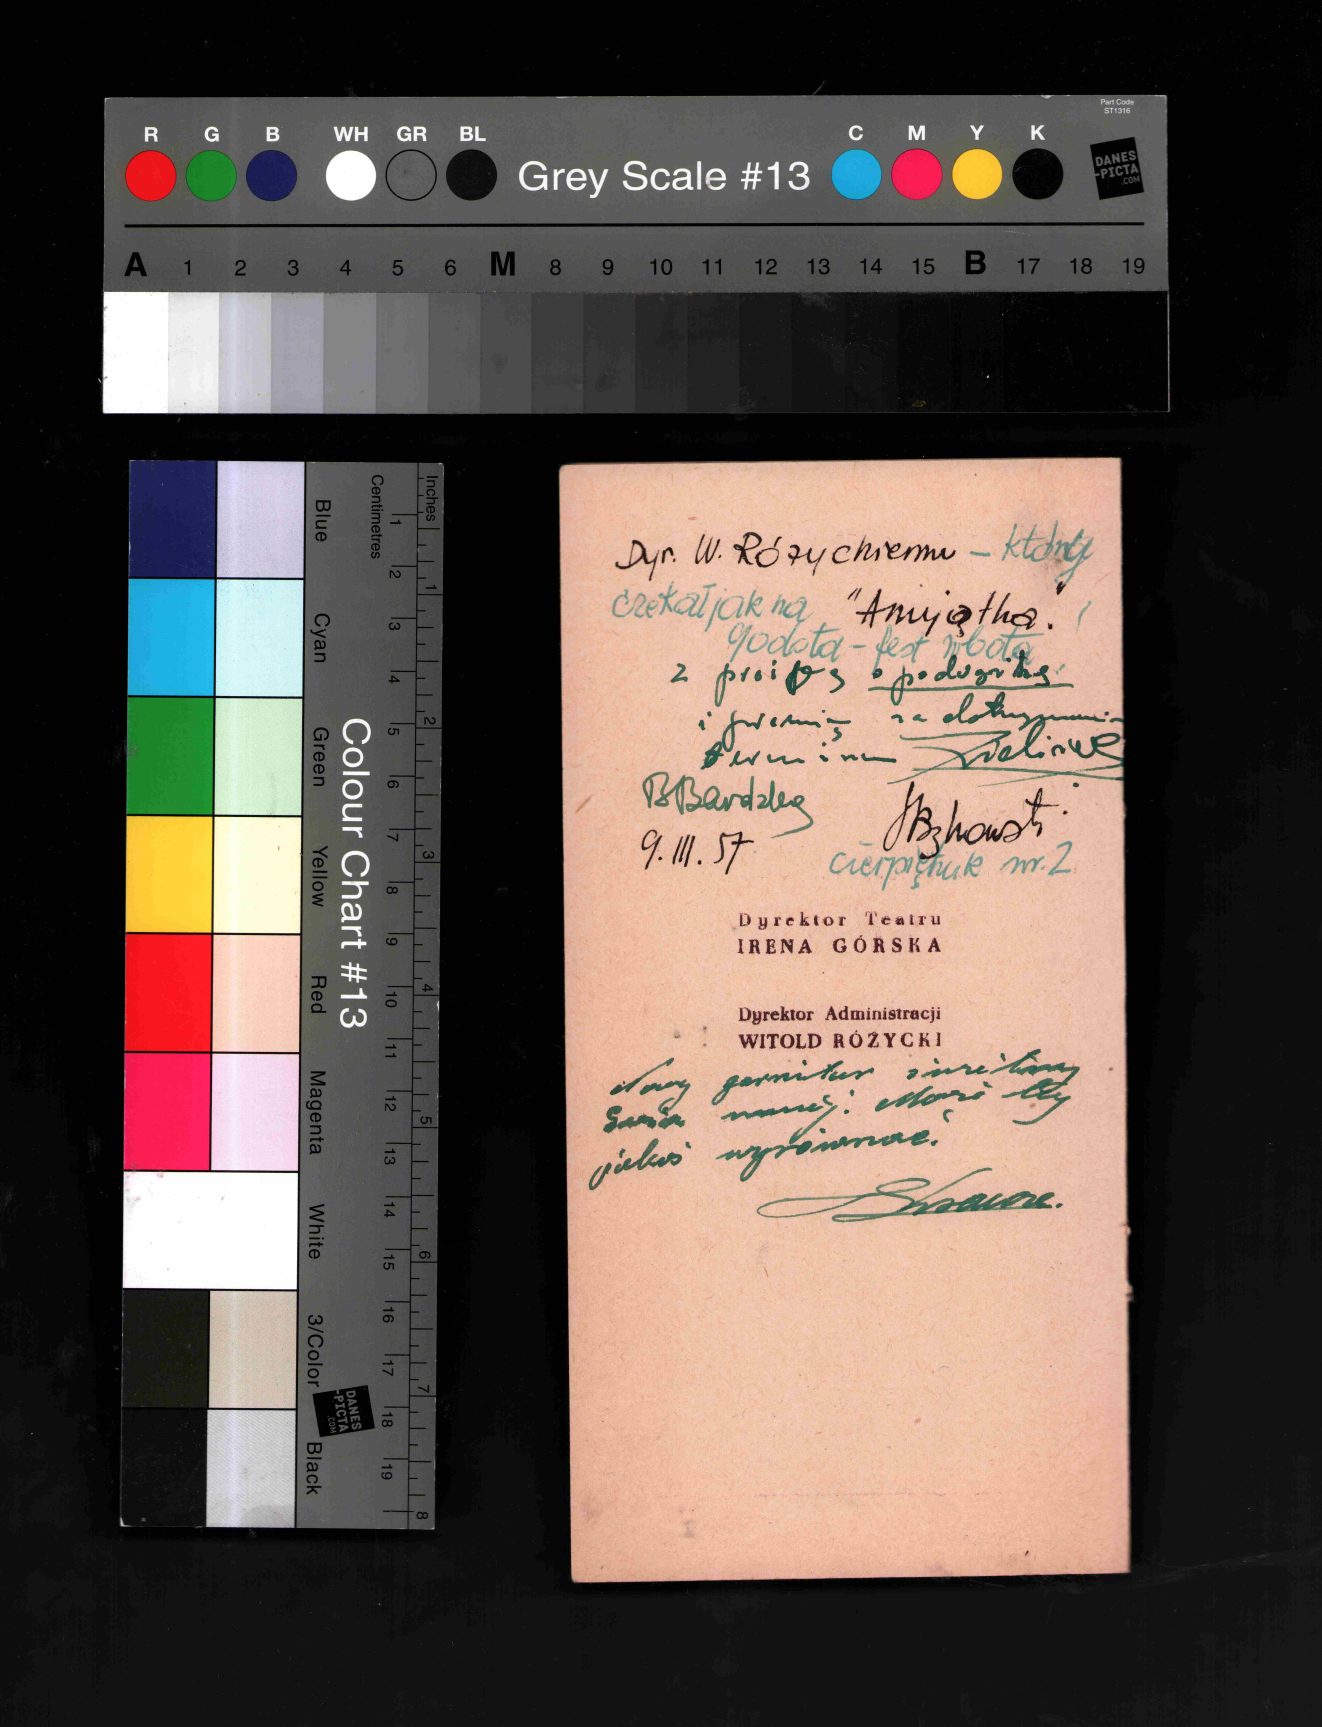 Part Code
ST1316
R G B WH GR BL Grey Scale #13 C M Y K
DANES
-PICTA
.COM
A 1 2 3 4 5 6 M 8 9 10 11 12 13 14 15 B 17 18 19
Colour Chart #13
Blue
Cyan
Green
Yellow
Red
Magenta
White
3/Color
Black
Centimetres
1 2 3 4 5 6 7 8 9 10 11 12 13 14 15 16 17 18 19
Inches
1 2 3 4 5 6 7 8
DANES
-PICTA
.COM
Dyr. W. Różyckiemu – który
czekał jak na
Godota – fest robota
z
i premię za dotrzymanie
terminu
B Bardzka
9. III. 57
nr. 2
Dyrektor Teatru
IRENA GÓRSKA
Dyrektor Administracji
WITOLD RÓŻYCKI
Nowy garnitur
jakoś wyrównać.